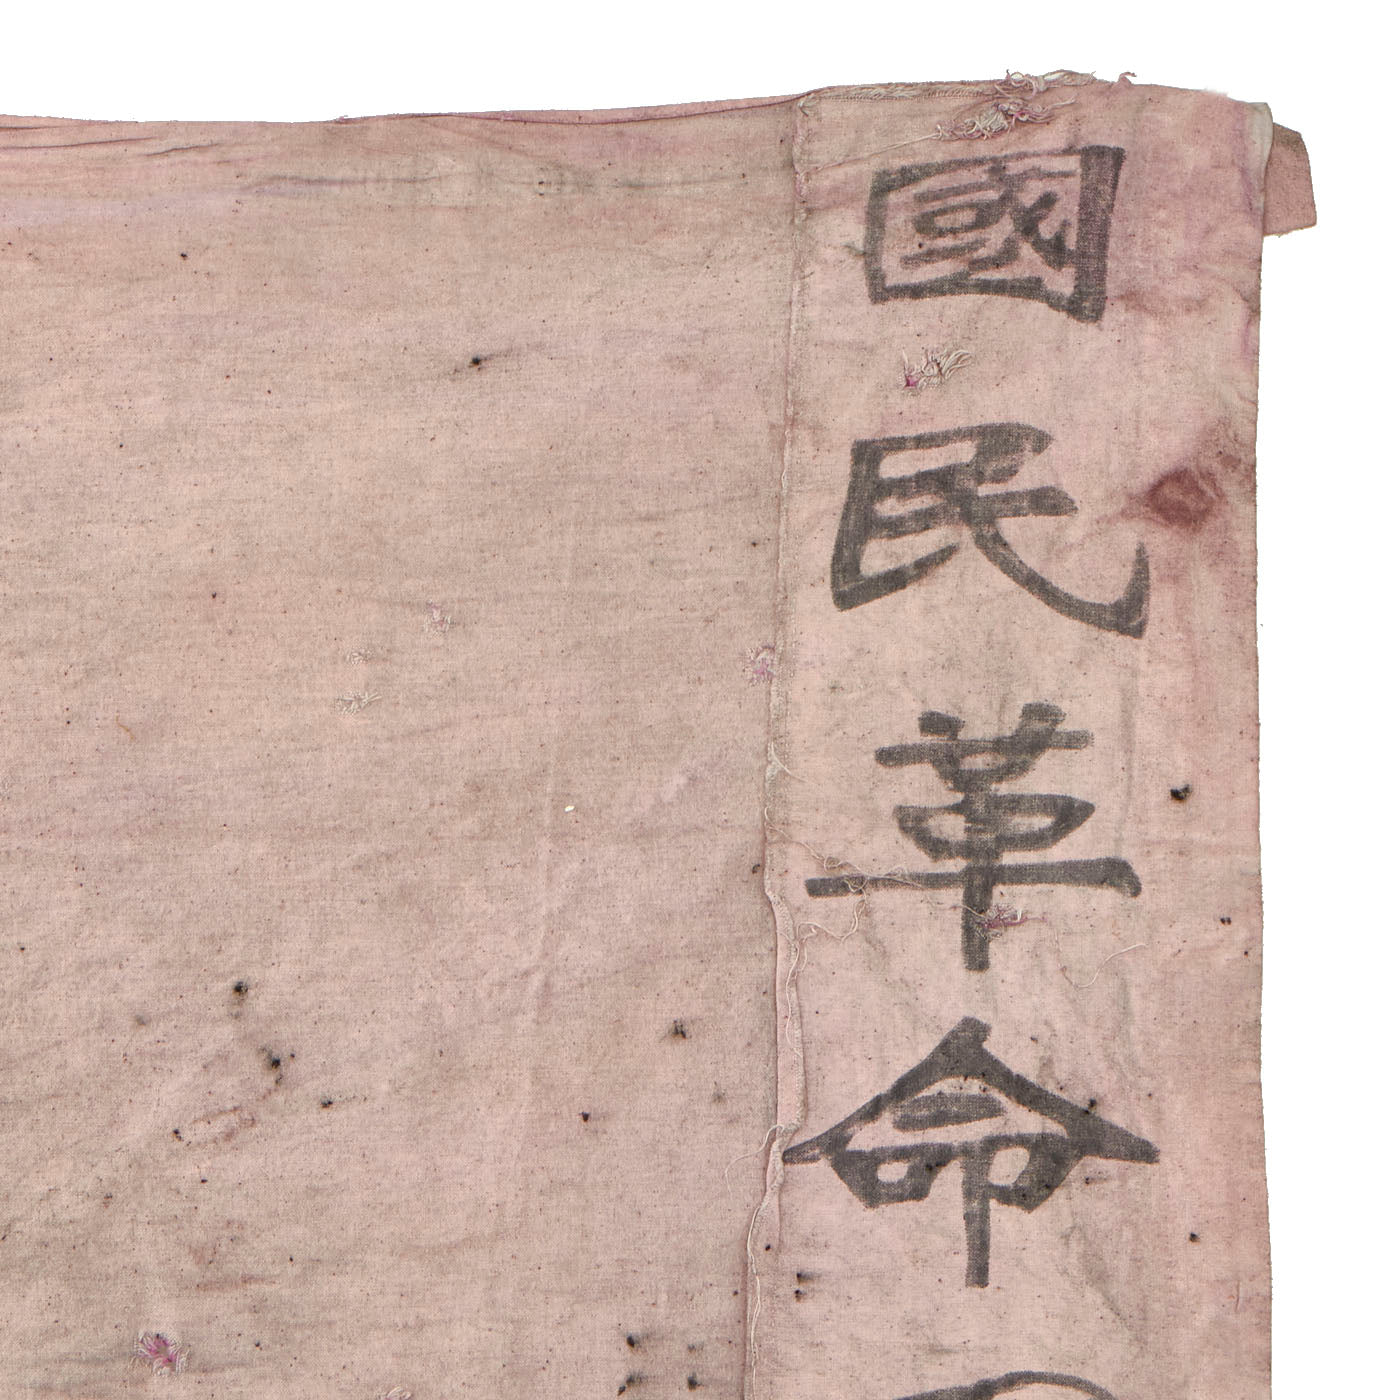 國民革命